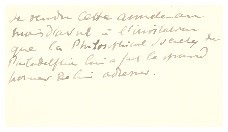 se rendre cette année au
mois d'avril à l'invitation
que la Philosophical Society de
Philadelphie lui a fait le grand
honneur de lui adresser.